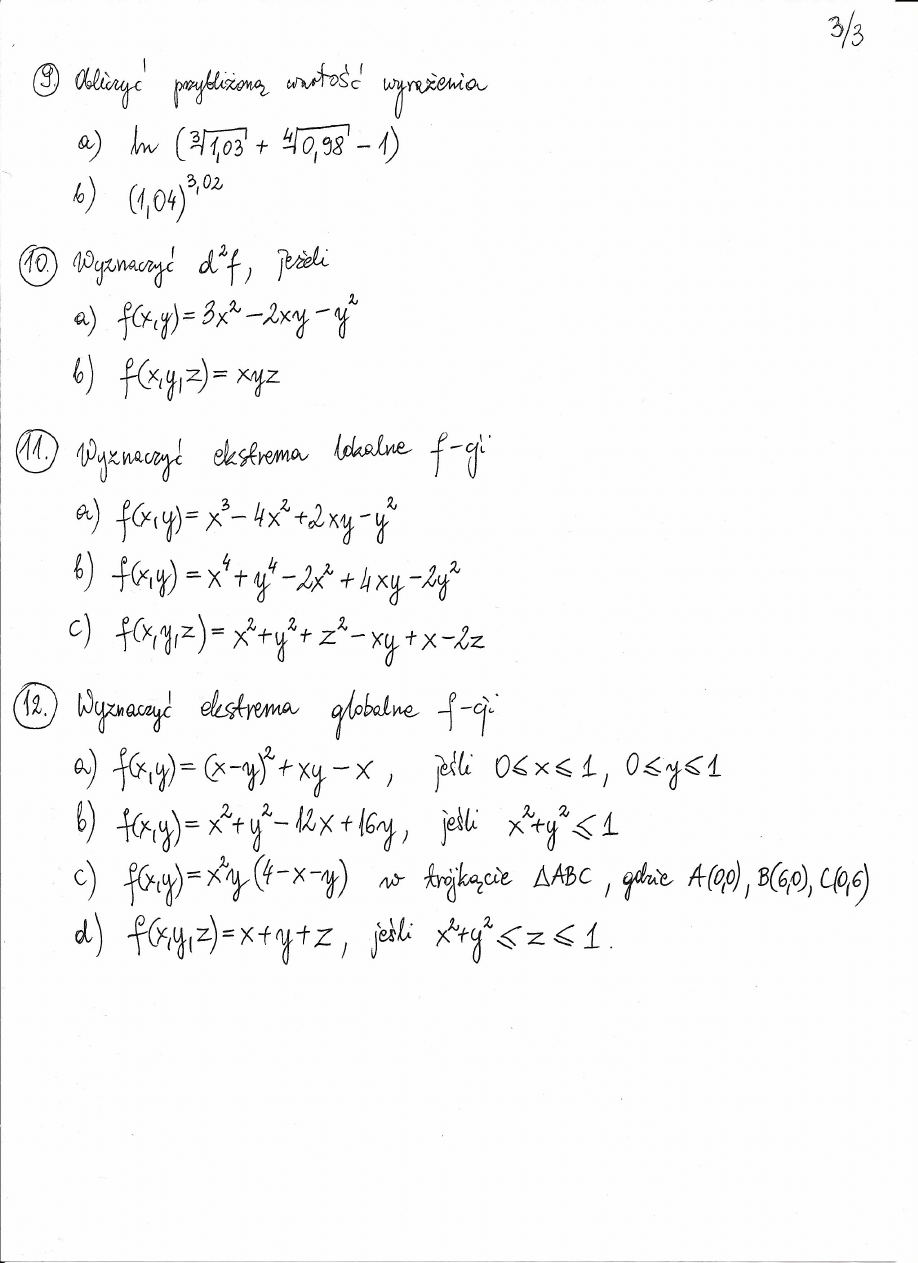 3/3
9. Obliczyć przybliżoną wartość wyrażenia
a) ln (∛1,03 + ∜0,98 - 1)
b) (1,04)^3,02
10. Wyznaczyć d²f, jeżeli
a) f(x,y) = 3x² - 2xy - y²
b) f(x,y,z) = xyz
11. Wyznaczyć ekstrema lokalne f-cji
a) f(x,y) = x³ - 4x² + 2xy - y²
b) f(x,y) = x⁴ + y⁴ - 2x² + 4xy - 2y²
c) f(x,y,z) = x² + y² + z² - xy + x - 2z
12. Wyznaczyć ekstrema globalne f-cji
a) f(x,y) = (x-y)² + xy - x , jeśli 0 ≤ x ≤ 1, 0 ≤ y ≤ 1
b) f(x,y) = x² + y² - 12x + 16y, jeśli x² + y² ≤ 1
c) f(x,y) = x²y (4-x-y) w trójkącie ΔABC, gdzie A(0,0), B(6,0), C(0,6)
d) f(x,y,z) = x+y+z, jeśli x² + y² ≤ z ≤ 1.